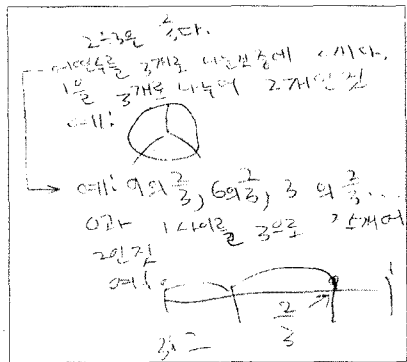 2÷3은 2/3다.
어떤수를 3개로 나눈것 중에
1을 3개로 나누어 2개인 것
예:
예: 9의 2/3, 6의 2/3, 3의 2/3...
0과 1 사이를 3으로 쪼개어
2인 것
예: 0 1
2/3